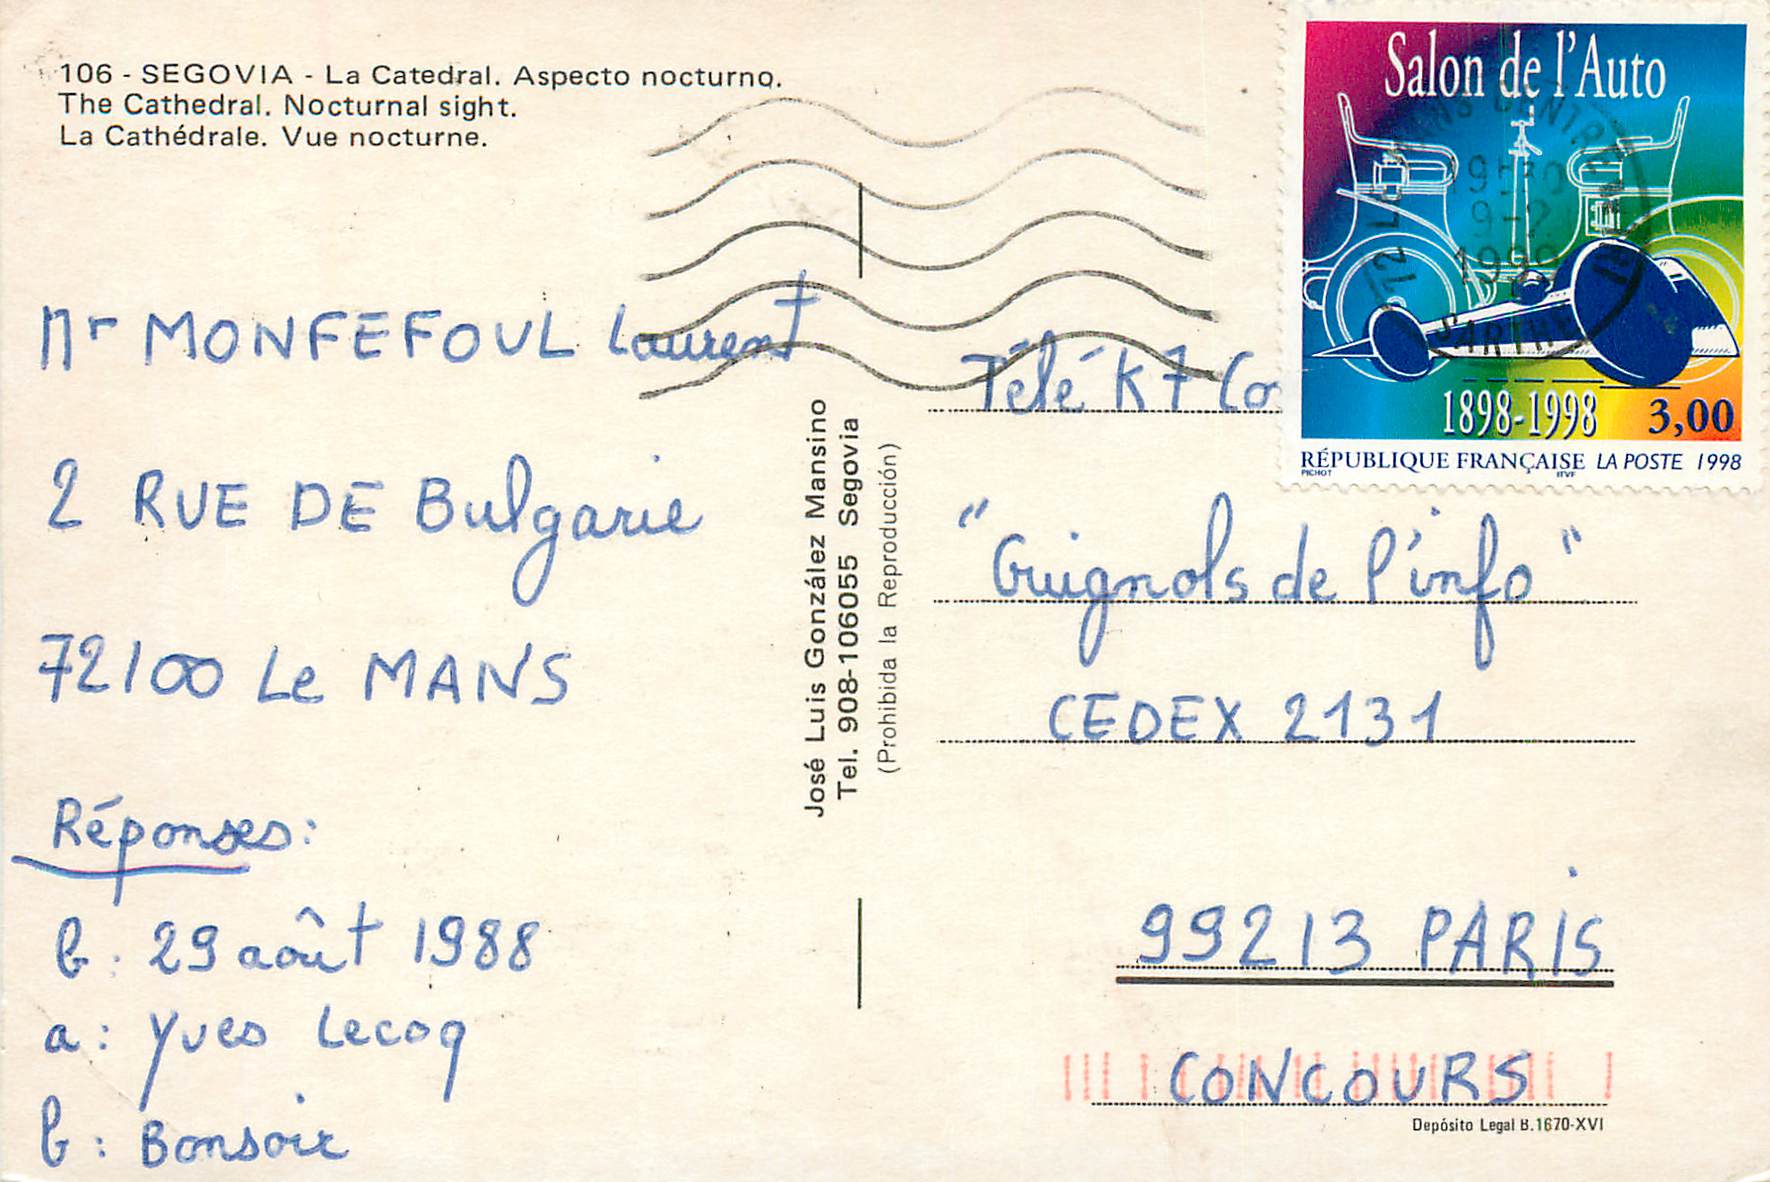 106 - SEGOVIA - La Catedral. Aspecto nocturno.
The Cathedral. Nocturnal sight.
La Cathédrale. Vue nocturne.
Mr MONFEFOUL Laurent
2 RUE DE Bulgarie
72100 Le MANS
Réponses:
b: 29 août 1988
a: Yves Lecoq
b: Bonsoir
José Luis González Mansino
Tel. 908-106055 Segovia
(Prohibida la Reproducción)
Salon de l'Auto
1898-1998 3,00
RÉPUBLIQUE FRANÇAISE LA POSTE 1998
PICHOT ITVF
72 LE MANS CENTRE
SARTHE
Télé K7 Co
"Guignols de l'info"
CEDEX 2131
99213 PARIS
CONCOURS
Depósito Legal B.1670-XVI